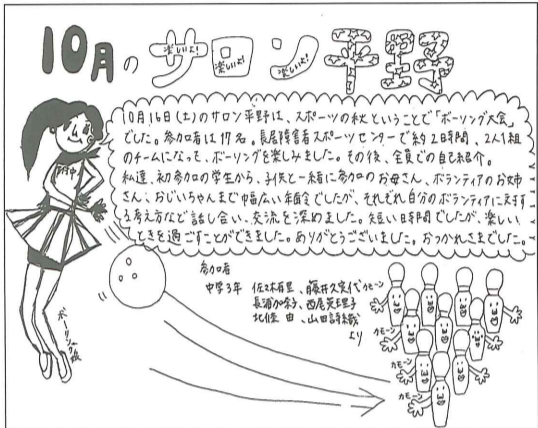 10月のサロン平野
楽しいよ!
楽しいよ!
楽しいよ!
10月16日(土)のサロン平野は、スポーツの秋ということで「ボーリング大会」
でした。参加者は17名。長居障害者スポーツセンターで約2時間、2人1組
のチームになって、ボーリングを楽しみました。その後、全員での自己紹介。
私達、初参加の学生から、子供と一緒に参加のお母さん、ボランティアのお姉
さん、おじいちゃんまで幅広い年齢でしたが、それぞれ自分のボランティアに対す
る考え方など話し合い、交流を深めました。短い日時間でしたが、楽しい
ときを過ごすことができました。ありがとうございました。おつかれさまでした。
参加者
中学3年 佐々木有里、藤井久実代
長浦加奈子、西尾英理子
北條 由、山田詩織
より
カモーン
カモーン
カモーン
カモーン